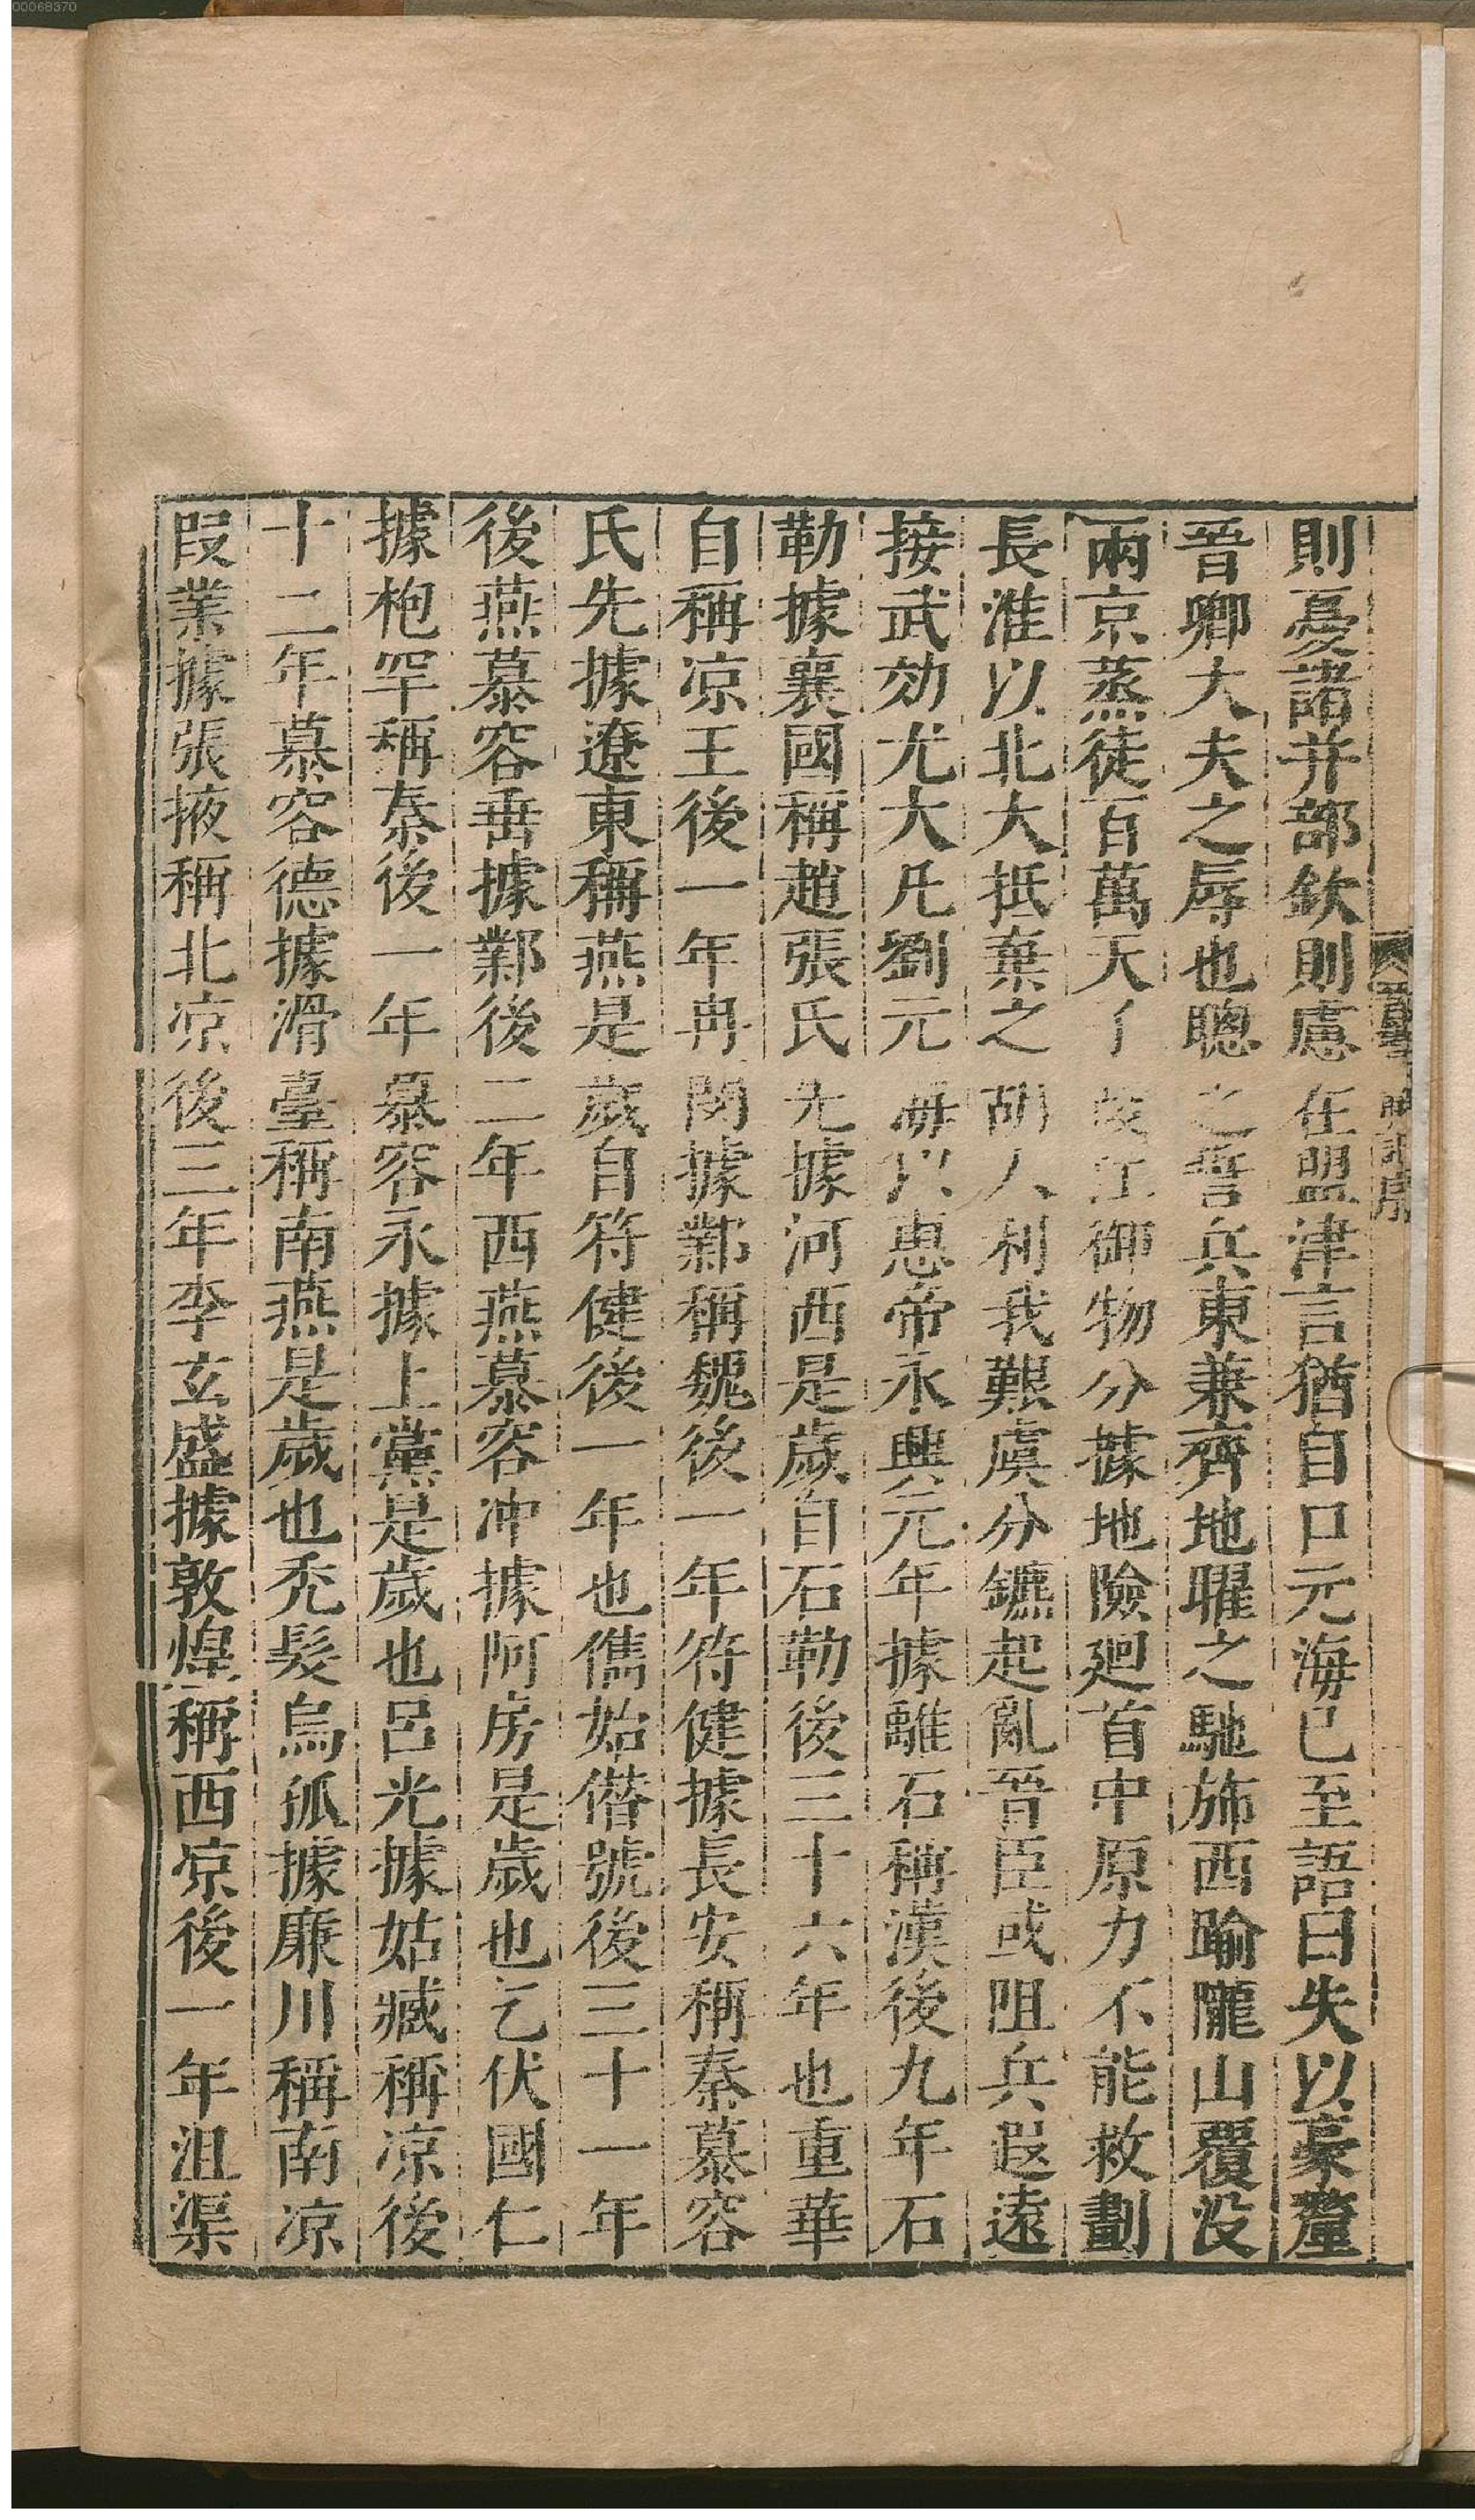 則憂諸并部欽則慮在盟津言猶自口元海已至語曰失以豪釐
晉卿大夫之辱也聰之誓兵東兼齊地曜之馳旆西踰隴山覆没
兩京蒸徒百萬天丁江御物分據地險廻首中原力不能救劃
長淮以北大抵棄之胡人利我艱虞分鑣起亂晉臣或阻兵遐遠
接武効尤大凡劉元海以惠帝永興元年據離石稱漢後九年石
勒據襄國稱趙張氏先據河西是歲自石勒後三十六年也重華
自稱凉王後一年冉閔據鄴稱魏後一年符健據長安稱秦慕容
氏先據遼東稱燕是歲自符健後一年也儁始僭號後三十一年
後燕慕容垂據鄴後二年西燕慕容冲據阿房是歲也乞伏國仁
據枹罕稱秦後一年慕容永據上黨是歲也呂光據姑臧稱凉後
十二年慕容德據滑臺稱南燕是歲也禿髮烏孤據廉川稱南凉
叚業據張掖稱北凉後三年李玄盛據敦煌稱西凉後一年沮渠
00068370